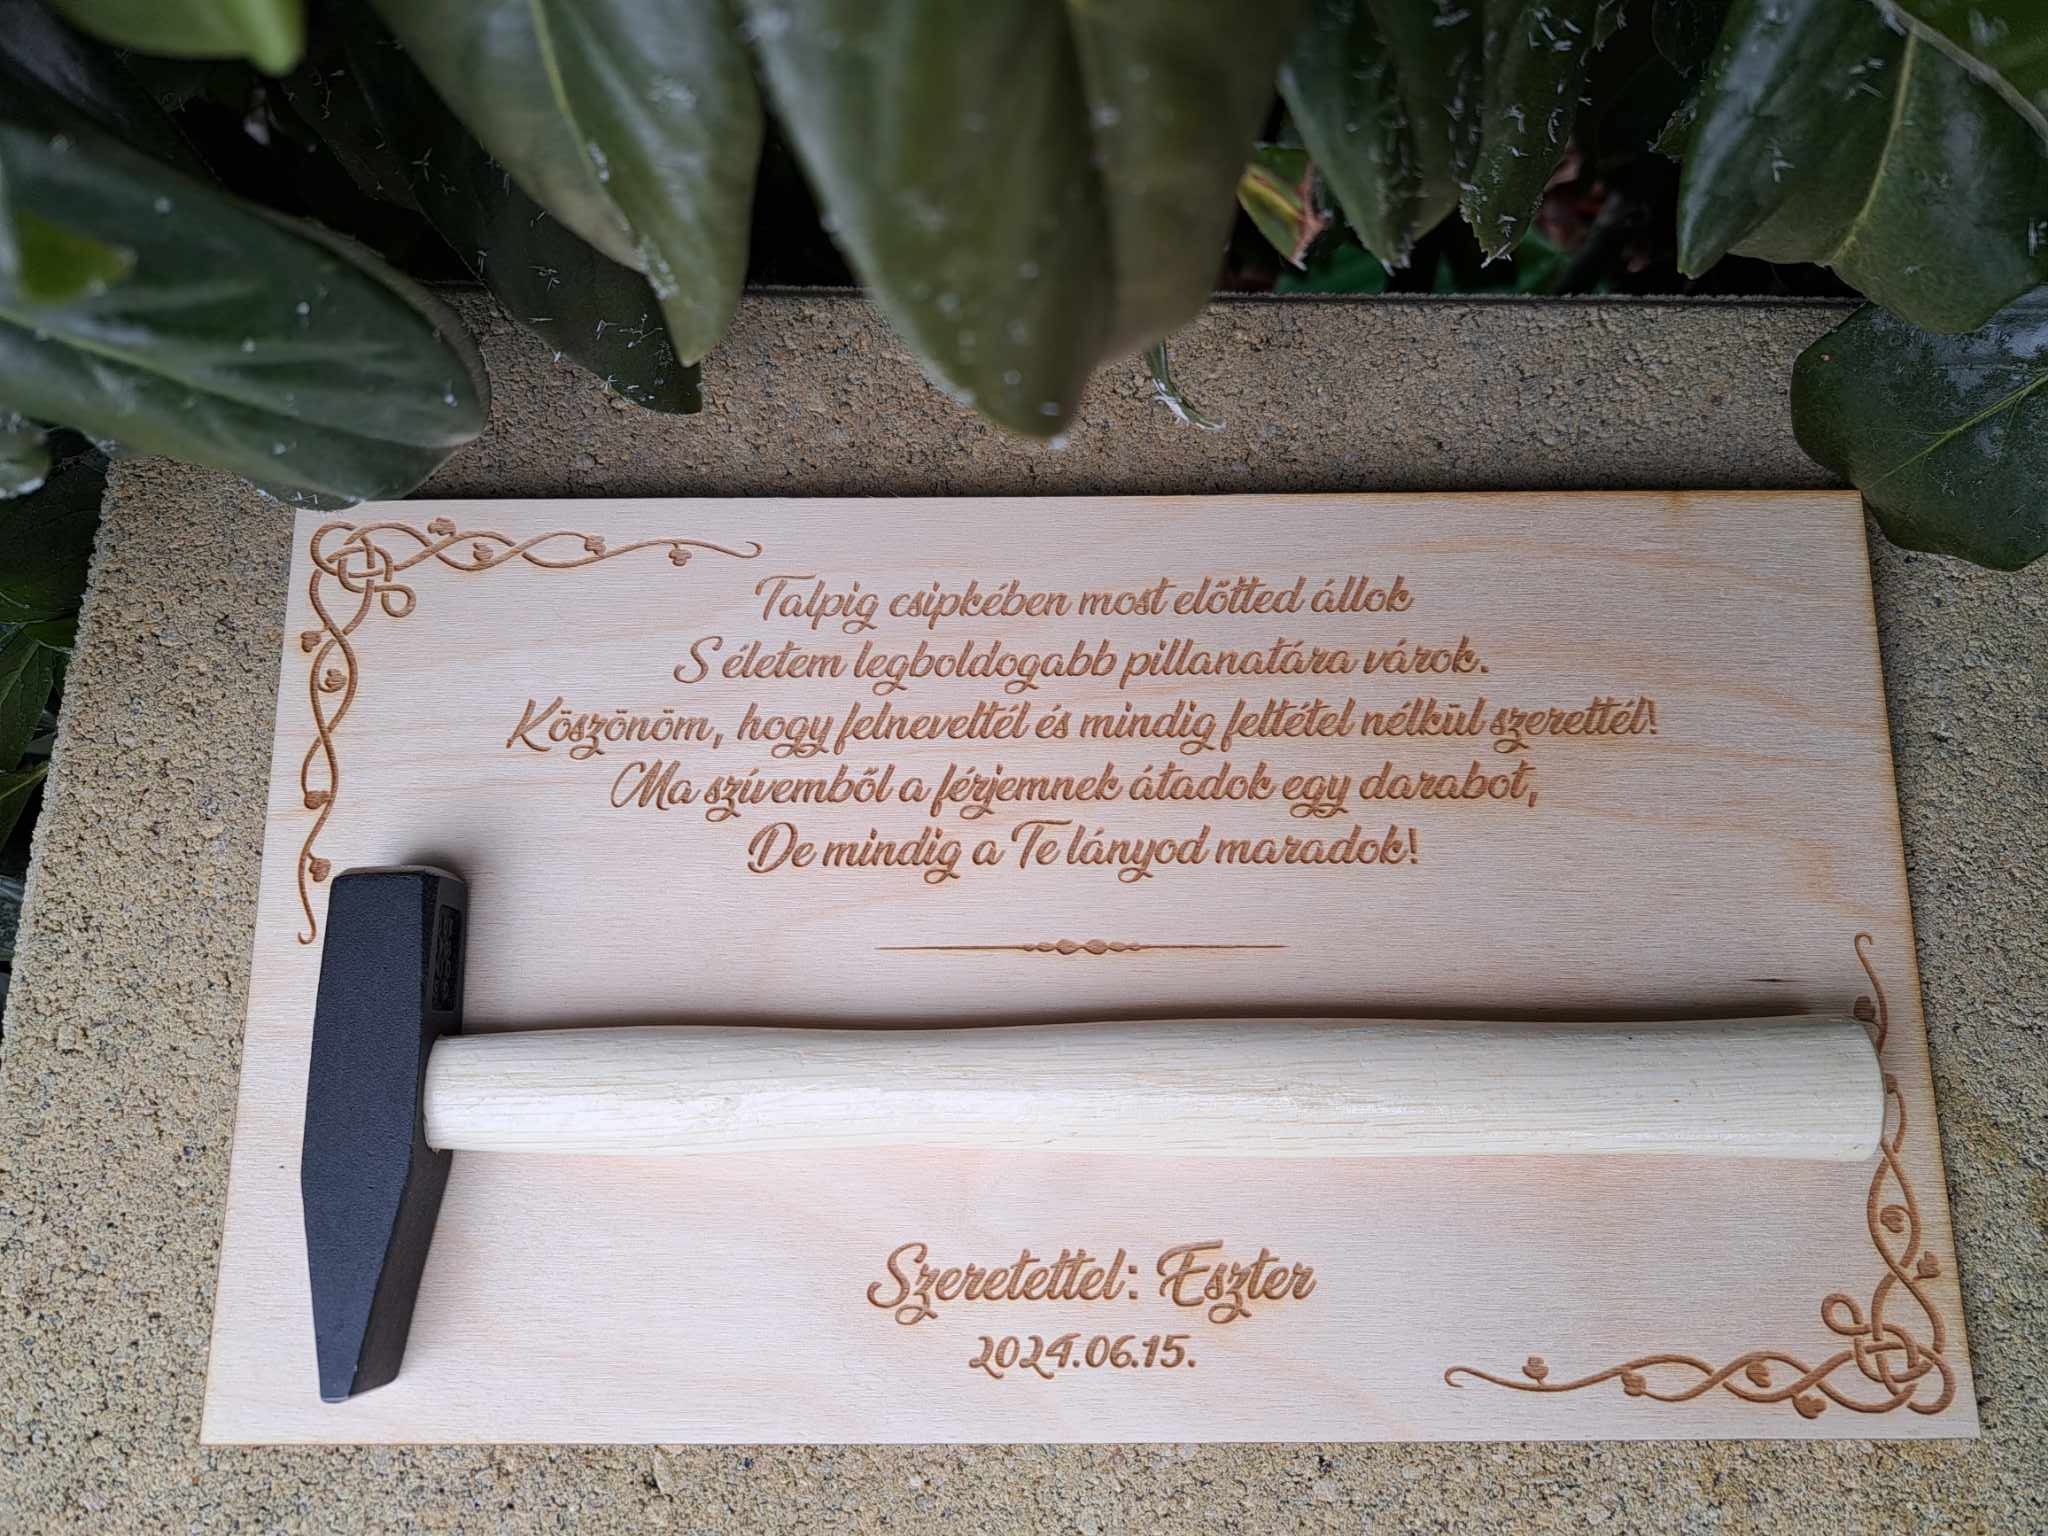 Talpig csipkében most előtted állok
S életem legboldogabb pillanatára várok.
Köszönöm, hogy felneveltél és mindig feltétel nélkül szerettél!
Ma szívemből a férjemnek átadok egy darabot,
De mindig a Te lányod maradok!
Szeretettel: Eszter
2024.06.15.